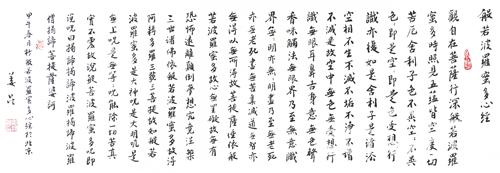 般若波羅蜜多心經
觀自在菩薩行深般若波羅
蜜多時照見五蘊皆空度一切
苦厄舍利子色不異空空不異
色色即是空空即是色受想行
識亦復如是舍利子是諸法
空相不生不滅不垢不淨不增
不減是故空中無色無受想行
識無眼耳鼻舌身意無色聲
香味觸法無眼界乃至無意識
界無無明亦無無明盡乃至無老死
亦無老死盡無苦集滅道無智亦
無得以無所得故菩提薩埵依般
若波羅蜜多故心無罣礙故無有
恐怖遠離顛倒夢想究竟涅槃
三世諸佛依般若波羅蜜多故得
阿耨多羅三藐三菩提故知般若
波羅蜜多是大神咒是大明咒是
無上咒是無等等咒能除一切苦真
實不虛故說般若波羅蜜多咒即
說咒曰揭諦揭諦波羅揭諦波羅
僧揭諦菩提薩婆訶
甲午春月抄般若波羅蜜多心經於北京